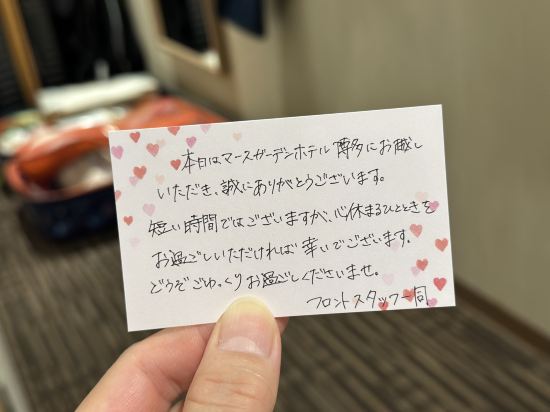 本日はマースガーデンホテル博多にお越し
いただき、誠にありがとうございます。
短い時間ではございますが、心休まるひとときを
お過ごしいただければ幸いでございます。
どうぞごゆっくりお過ごしくださいませ。
フロントスタッフ一同